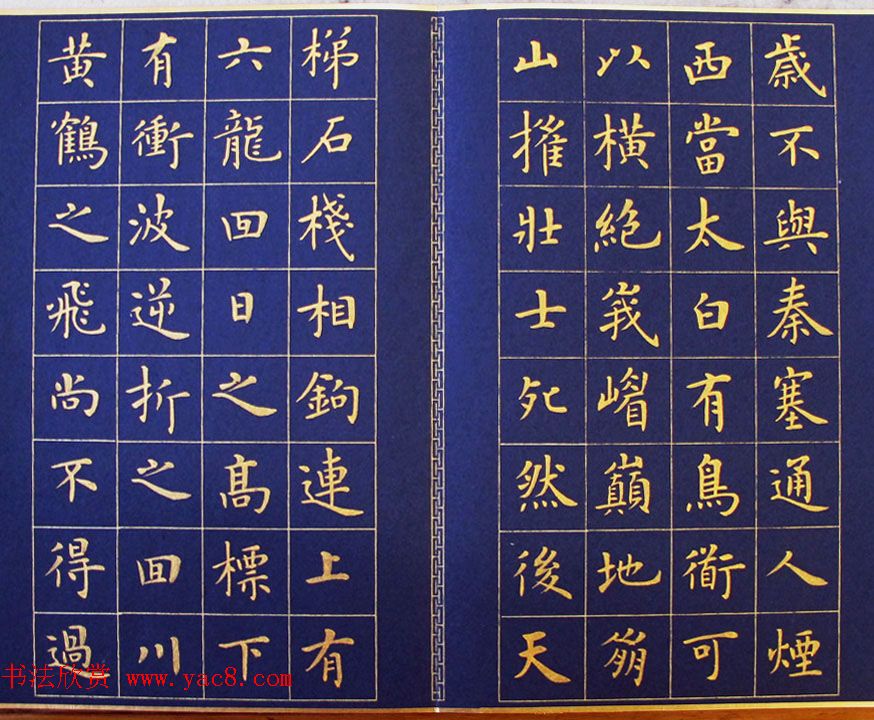 歳不與秦塞通人煙
西當太白有鳥衜可
以橫絶峩嵋巔地崩
山摧壯士死然後天
梯石棧相鉤連上有
六龍囬日之髙標下
有衝波逆折之囬川
黃鶴之飛尚不得過
书法欣赏 www.yac8.com